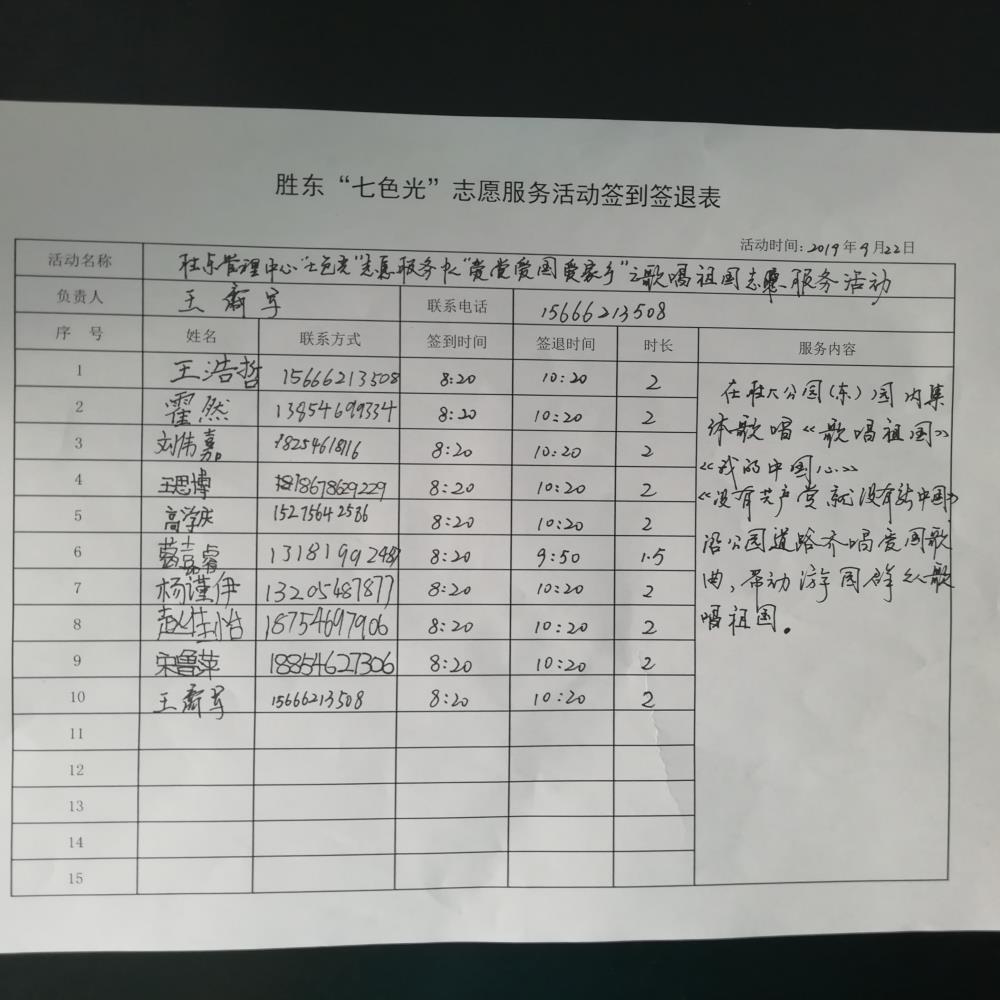 胜东“七色光”志愿服务活动签到签退表
活动时间: 2019 年 9 月 22 日
活动名称 胜东管理中心“七色光”志愿服务队“爱党爱国爱家乡”之歌唱祖国志愿服务活动
负责人 王 联系电话 15666213508
序 号 姓名 联系方式 签到时间 签退时间 时长 服务内容
1 王浩哲 15666213508 8:20 10:20 2
2 霍然 13854699334 8:20 10:20 2
3 刘伟嘉 18254618116 8:20 10:20 2
4 王思博 18678629229 8:20 10:20 2
5 高学庆 15275642586 8:20 10:20 2
6 葛嘉睿 8:20 9:50 1.5
7 杨谨伊 13205487877 8:20 10:20 2
8 赵佳怡 18754697906 8:20 10:20 2
9 宋鲁萍 18854627306 8:20 10:20 2
10 王 15666213508 8:20 10:20 2
11
12
13
14
15
在胜大公园(东)园内集
体歌唱《歌唱祖国》
《我的中国心》
《没有共产党就没有新中国》
沿公园道路齐唱爱国歌
曲,带动游园群众歌
唱祖国。